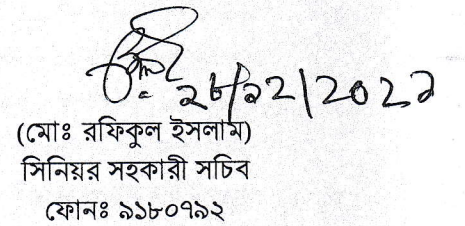 ২৮/১২/২০২১
(মোঃ রফিকুল ইসলাম)
সিনিয়র সহকারী সচিব
ফোনঃ ৯১৮০৭৯২